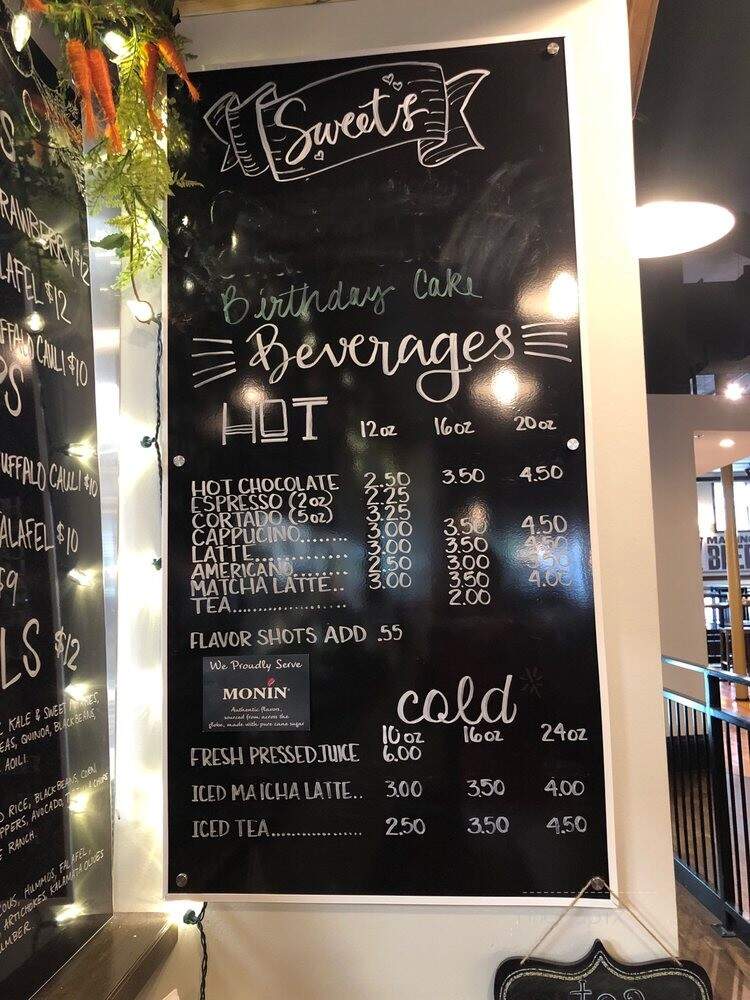 Sweet's
Birthday Cake
Beverages
HOT 12oz 16oz 20oz
HOT CHOCOLATE 2.50 3.50 4.50
ESPRESSO (2oz) 2.25
CORTADO (5oz) 3.25
CAPPUCINO........ 3.00 3.50 4.50
LATTE.............. 3.00 3.50
AMERICANO....... 2.50 3.00
MATCHA LATTE.. 3.00 3.50 4.00
TEA................. 2.00
FLAVOR SHOTS ADD .55
We Proudly Serve
MONIN
Authentic flavors,
sourced from across the
globe, made with pure cane sugar
cold
10oz 16oz 24oz
FRESH PRESSED JUICE 6.00
ICED MATCHA LATTE.. 3.00 3.50 4.00
ICED TEA.............. 2.50 3.50 4.50
$12
$12
CAULI $10
UFFALO CAULI $10
$10
$9
$12
KALE & SWEET
QUINOA, BLACKBEANS,
AOILI.
RICE, BLACK BEANS, CORN,
AVOCADO,
RANCH.
HUMMUS, FALAFEL,
ARTICHOKES, KALAMATA OLIVES
tea